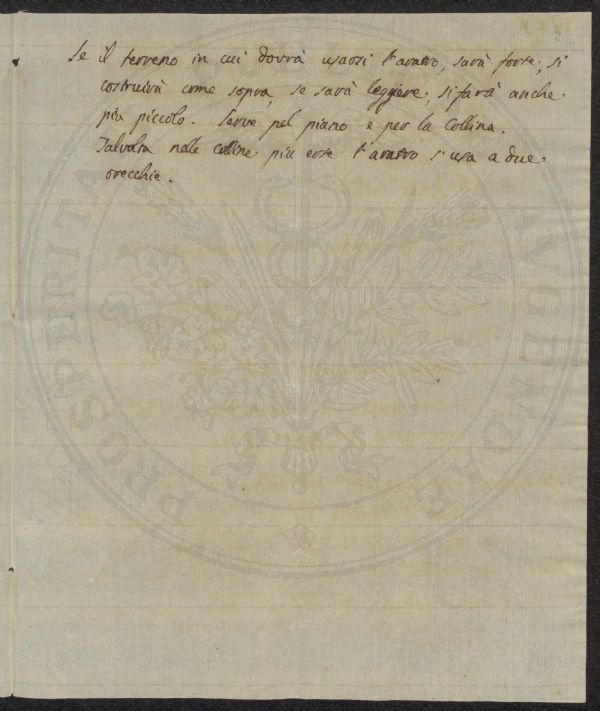 Se il terreno in cui dovrà usarsi l'aratro, sarà forte, si
costruirà come sopra, se sarà leggiere, si farà anche
più piccolo. Serve pel piano e per la Collina.
Talvolta nelle colline più erte l'aratro si usa a due
orecchie.
PROSPERITATI AUGENDAE